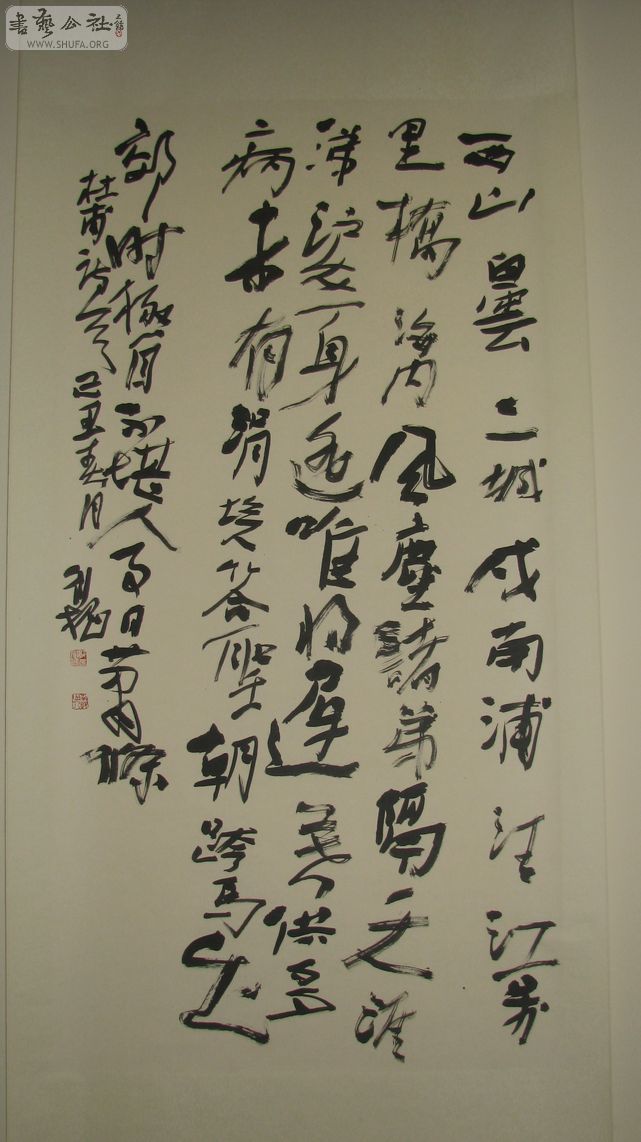 書藝公社
WWW.SHUFA.ORG
西山白雲三城戍南浦清江萬
里橋海内風塵諸弟隔天涯
涕淚一身遥唯將遲暮供多
病未有涓埃答聖朝跨馬出
郊時極目不堪人事日蕭條
杜甫詩 己丑春月